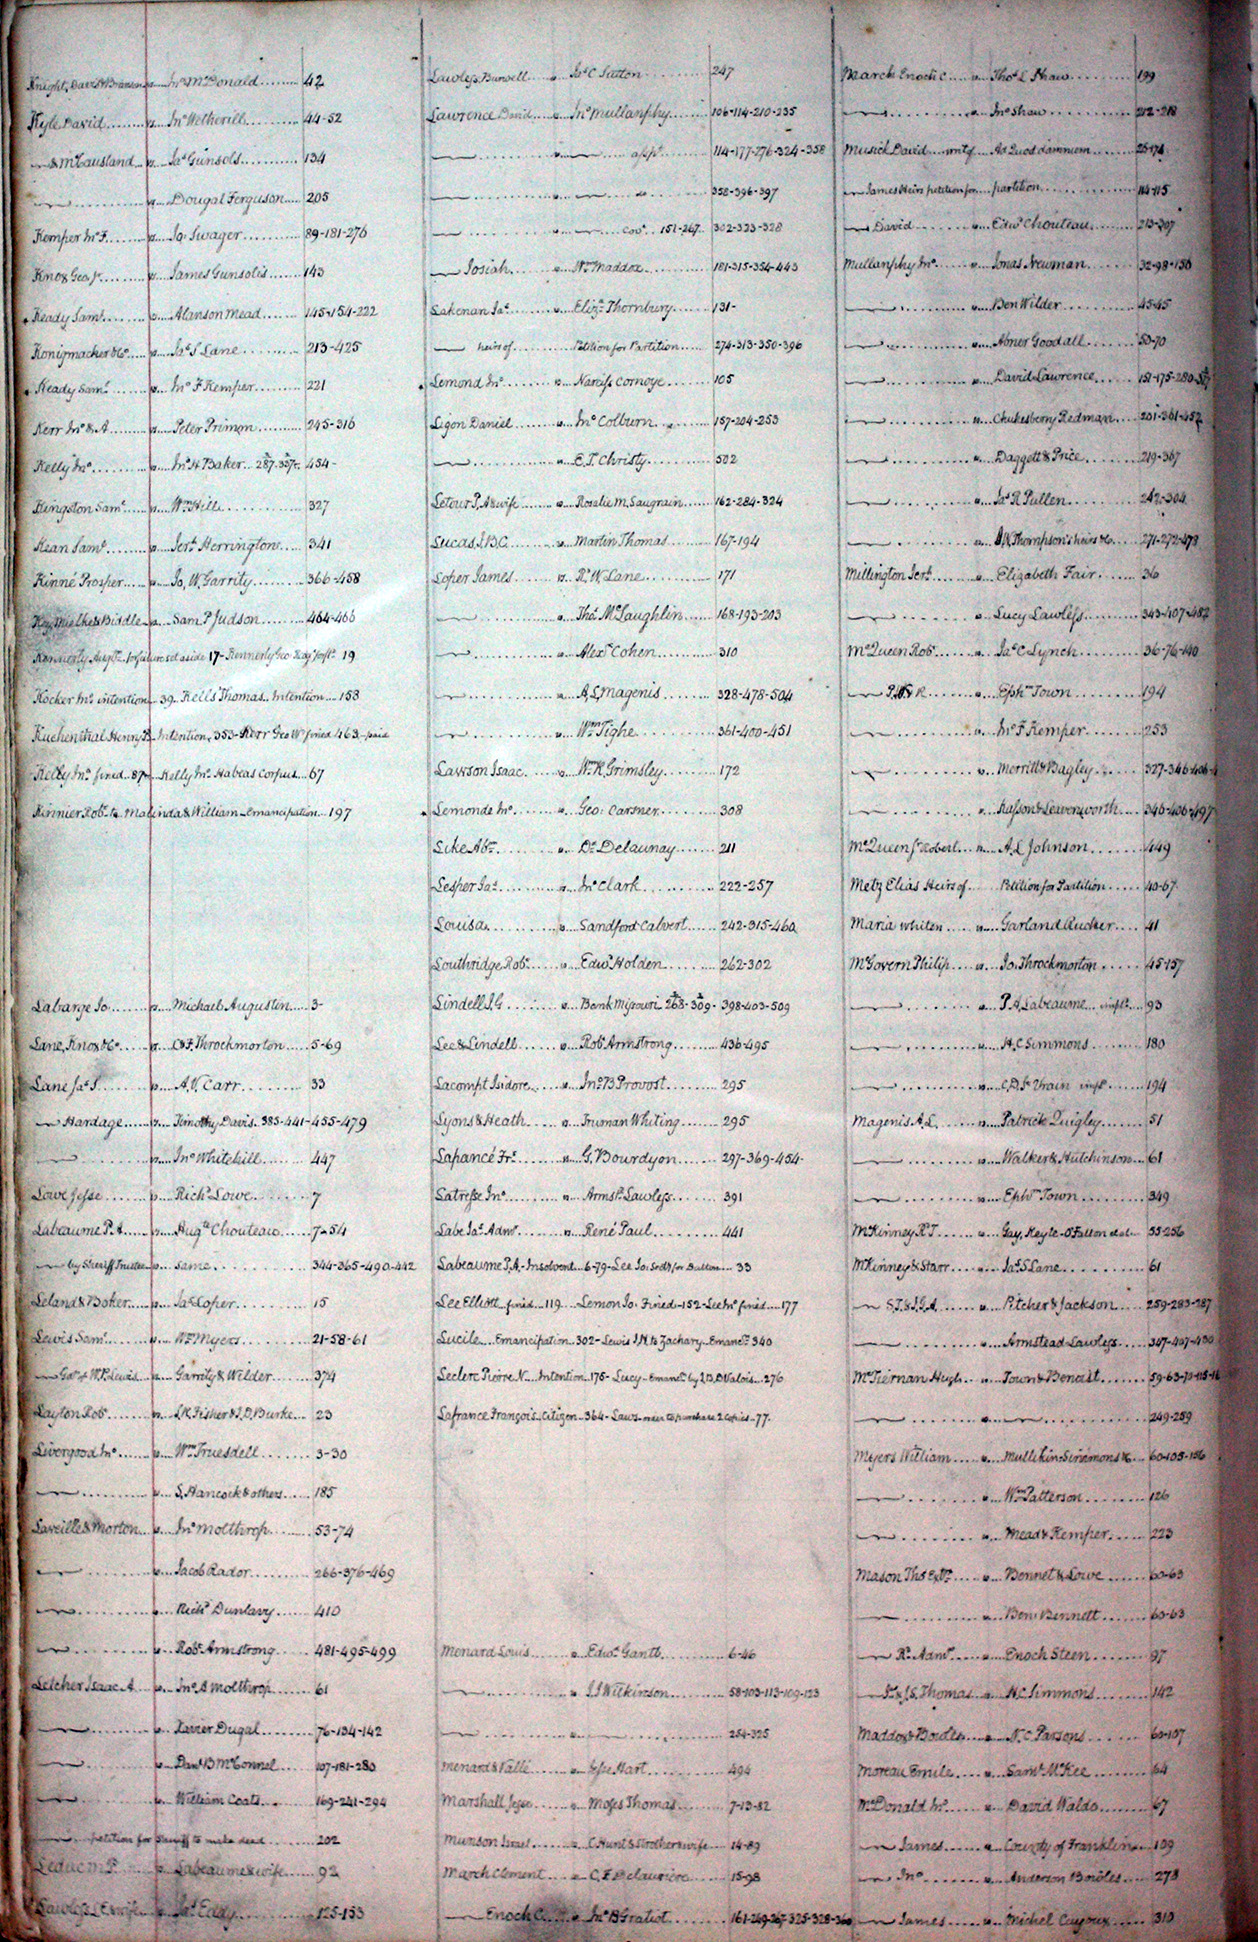 Knight, David & Branson vs. Jno McDonald ........ 42
Kyle David ........ vs. Jno Wetherill ........ 44-52
— & McCausland .. vs. Jas Gunsols ........ 134
— ........ vs. Dougal Ferguson ..... 205
Kemper Jno F. ...... vs. Jo: Swager ........ 89-181-276
Knox Geo Jr ...... vs. James Gunsolis ..... 143
Keady Saml ....... vs. Alanson Mead ....... 145-154-222
Konigmacher & Co .... vs. Jas S Lane ........ 213-425
Keady Saml ...... vs. Jno F Kemper ........ 221
Kerr Jno & A ....... vs. Peter Primm ........ 245-316
Kelly Jno ........ vs. Jno H Baker .. 287-357- 454-
Kingston Saml .... vs. Wm Hill ........ 327
Kean Saml ....... vs. Jerh Herrington .... 341
Kinné Prosper .... vs. Jo, W. Garrity ....... 366-458
& Biddle vs. Sam. P Judson ...... 464-466
Kennerly Augt. forfeiture set aside 17- Kennerly Geo 19
Kocker Jno intention - 39. Kells Thomas. Intention ... 158
Kuchenthal Henry B. Intention, 353- Kerr Geo W. fined 463 - paid
Kelly Jno fined .. 87- Kelly Jno Habeas corpus ... 67
Kinnier Rob. to Malinda & William - Emancipation ... 197
Labarge Jo ....... vs. Michael Augustin .... 3-
Lane, Knox & Co .... vs. C & F. Throckmorton .... 5-69
Lane Jas S ...... vs. A, V. Carr ........ 33
— Hardage ..... vs. Timothy Davis. 383-441-455-479
— ........ vs. Jno Whitehill ....... 447
Lowe Jesse ...... vs. Richd Lowe ........ 7
Labeaume P. A ..... vs. Augte Chouteau ...... 7-54
— by Sheriff Trustee vs. same ........ 344-365-490-442
Leland & Boker ..... vs. Jas Loper ........ 15
Lewis Saml ...... vs. Wm Myers ........ 21-58-61
— W. P. Lewis ... vs. Garrity & Wilder ...... 374
Layton Rob. ...... vs. J.K. Fisher & J, D, Burke ... 23
Livergood Jno ...... vs. Wm Truesdell ....... 3-30
— ........ vs. S, Hancock & others .... 185
Laveille & Morton .. vs. Jno Molthrop ....... 53-74
— ........ vs. Jacob Rador ........ 266-376-469
— ........ vs. Richd Dunlavy ...... 410
— ........ vs. Robt Armstrong ..... 481-495-499
Letcher Isaac A ... vs. Jno, A Molthrop ...... 61
— ........ vs. Xavier Dugal ....... 76-134-142
— ........ vs. Danl B McConnel ..... 107-181-280
— ........ vs. William Coats ...... 169-241-294
— petition for Sheriff to make deed ........ 202
Leduc M. P. ...... vs. Labeaume & wife ..... 92
Lawless L. E & wife vs. Jas Eady ........ 125-153
Lawless Burwell .. vs. Jas C Sutton ........ 247
Lawrence David ... vs. Jno Mullanphy ....... 106-114-210-235
— ........ vs. — appt. ..... 114-177-276-324-358
— ........ vs. — do ..... 358-396-397
— ........ vs. — cov. 151-267. 302-323-328
— Josiah ..... vs. Wm Maddox ........ 181-315-354-443
Lakenan Jas ...... vs. Eliz. Thornbury ..... 131-
— heirs of ...... Petition for Partition ..... 274-313-350-396
Lemond Jno ...... vs. Narciss Cornoye ...... 105
Ligon Daniel ...... vs. Jno Colburn ....... 157-204-253
— ........ vs. E. T. Christy ....... 502
Letour P, A & wife ... vs. Rosalie M. Saugrain ..... 162-284-324
Lucas, J. B. C. ..... vs. Martin Thomas ...... 167-194
Loper James ..... vs. R. W. Lane ........ 171
— ........ vs. Thos McLaughlin ..... 168-193-203
— ........ vs. Alexr Cohen ....... 310
— ........ vs. A, L, Magenis ....... 328-478-504
— ........ vs. Wm Tighe ........ 361-400-451
Lawson Isaac .... vs. Wm K. Grimsley ..... 172
Lemonde Jno ..... vs. Geo: Carsner ....... 308
Like Abm ...... vs. Dr Delaunay ....... 211
Lesper Jas ...... vs. Jno Clark ........ 222-257
Louisa ........ vs. Sandford Calvert ..... 242-315-460
Louthridge Rob. ... vs. Edwd Holden ...... 262-302
Lindell, J. G ...... vs. Bank Missouri 268-309- 398-403-509
Lee & Lindell ..... vs. Robt Armstrong ..... 436-495
Lacompt Isidore ... vs. Jno B Provost ...... 295
Lyons & Heath .... vs. Truman Whiting ..... 295
Lapancé Frs ..... vs. G, Bourdyon ....... 297-369-454-
Latresse Jno ...... vs. Armstd Lawless ..... 391
Labe Jas Admr .... vs. René Paul ....... 441
Labeaume P, A,- Insolvent .. 6-79- Lee Jo: Secty for Dutton ... 33
Lee Elliott fined ... 119 ... Lemon Jo: Fined - 152 - Lee Jno fined ... 177
Lucile ... Emancipation 302- Lewis J. N to Zachary - Emancn 340
Leclerc Pierre N ... Intention 175- Lucy - Emancd by J, B, D Valois .. 276
Lafrance François - Citizen .. 364- Laws - order to purchase 2 copies .. 77.
Menard Louis ..... vs. Edwd Gantt ........ 6-46
— ........ vs. J, J Wilkinson ...... 58-103-113-109-123
— ........ vs. — ........ 254-325
Menard & Vallé .... vs. Jesse Hart ........ 494
Marshall Jesse .... vs. Moses Thomas ...... 7-13-82
Munson Israel .... vs. C Hunt & Strother & wife ... 14-89
March Clement ... vs. C. F. Delauriere ...... 15-98
— Enoch C. ... vs. Jno B Gratiot ...... 161-249-267-325-328-360
March Enoch C ... vs. Thos L Shaw ........ 199
— ........ vs. Jno Shaw ........ 212-218
Musick David ... writ of Ad Quod damnum ......
— James Heirs petition for partition ........ 114-115
— David ...... vs. Edwd Chouteau ....... 213-297
Mullanphy Jno .... vs. Jonas Newman ...... 32-98-156
— ........ vs. Ben Wilder ........ 45-45
— ........ vs. Abner Goodall ...... 50-70
— ........ vs. David Lawrence ..... 151-175-280
— ........ vs. Chukesberry Redman .. 201-361-457
— ........ vs. Daggett & Price ..... 219-367
— ........ vs. Jas R Pullen ...... 242-304
— ........ vs. Thompson's heirs &c .. 271-272-473
Millington Jerh .... vs. Elizabeth Fair ...... 36
— ........ vs. Lucy Lawless ...... 343-407-482
McQueen Rob. .... vs. Jas C Lynch ...... 36-76-140
— ........ vs. Ephm Town ....... 194
— ........ vs. Jno F Kemper ...... 253
— ........ vs. Merrill & Bagley ..... 327-346-406
— ........ vs. Sasson & Leavenworth .. 346-406-497
McQueen Jr Robert .. vs. A. L Johnson ...... 449
Metz Elias Heirs of .. Petition for Partition .... 40-67
Maria whiten .... vs. Garland Rucker ..... 41
McGovern Philip ... vs. Jo. Throckmorton .... 45-157
— ........ vs. P. A, Labeaume .. impld. 93
— ........ vs. H, C Simmons ...... 180
— ........ vs. C, D, St Vrain impl. .. 194
Magenis A. L ..... vs. Patrick Quigley ..... 51
— ........ vs. Walker & Hutchinson .. 61
— ........ vs. Ephm Town ....... 349
McKinney R. T ... vs. Gay, Keyte - O'Fallon et al .. 55-256
McKinney & Starr ... vs. Jas S Lane ........ 61
— S. T. & J. G. A ... vs. Pitcher & Jackson .... 259-283-287
— ........ vs. Armstead Lawless ... 307-407-430
McTiernan Hugh .. vs. Town & Benoist .... 59-63-70-115
— ........ vs. — ........ 249-259
Myers William .... vs. Mullikin-Simmons & .. 60-105-156
— ........ vs. Wm Patterson ...... 126
— ........ vs. Mead & Kemper ..... 223
Mason Thos Extr ... vs. Bennet & Lowe .... 60-63
— ........ vs. Ben: Bennett ...... 60-63
— R. Admr .... vs. Enoch Steen ....... 97
— J. S. Thomas vs. H, C Simmons ...... 142
Maddox & Bowles ... vs. N, C Parsons ...... 60-107
Moreau Emile .... vs. Saml McKee ...... 64
McDonald Jno .... vs. David Waldo ...... 67
— James ..... vs. County of Franklin .. 109
— Jno ........ vs. Anderson Bowles ..... 278
— James ..... vs. Michel Cayoux ..... 310